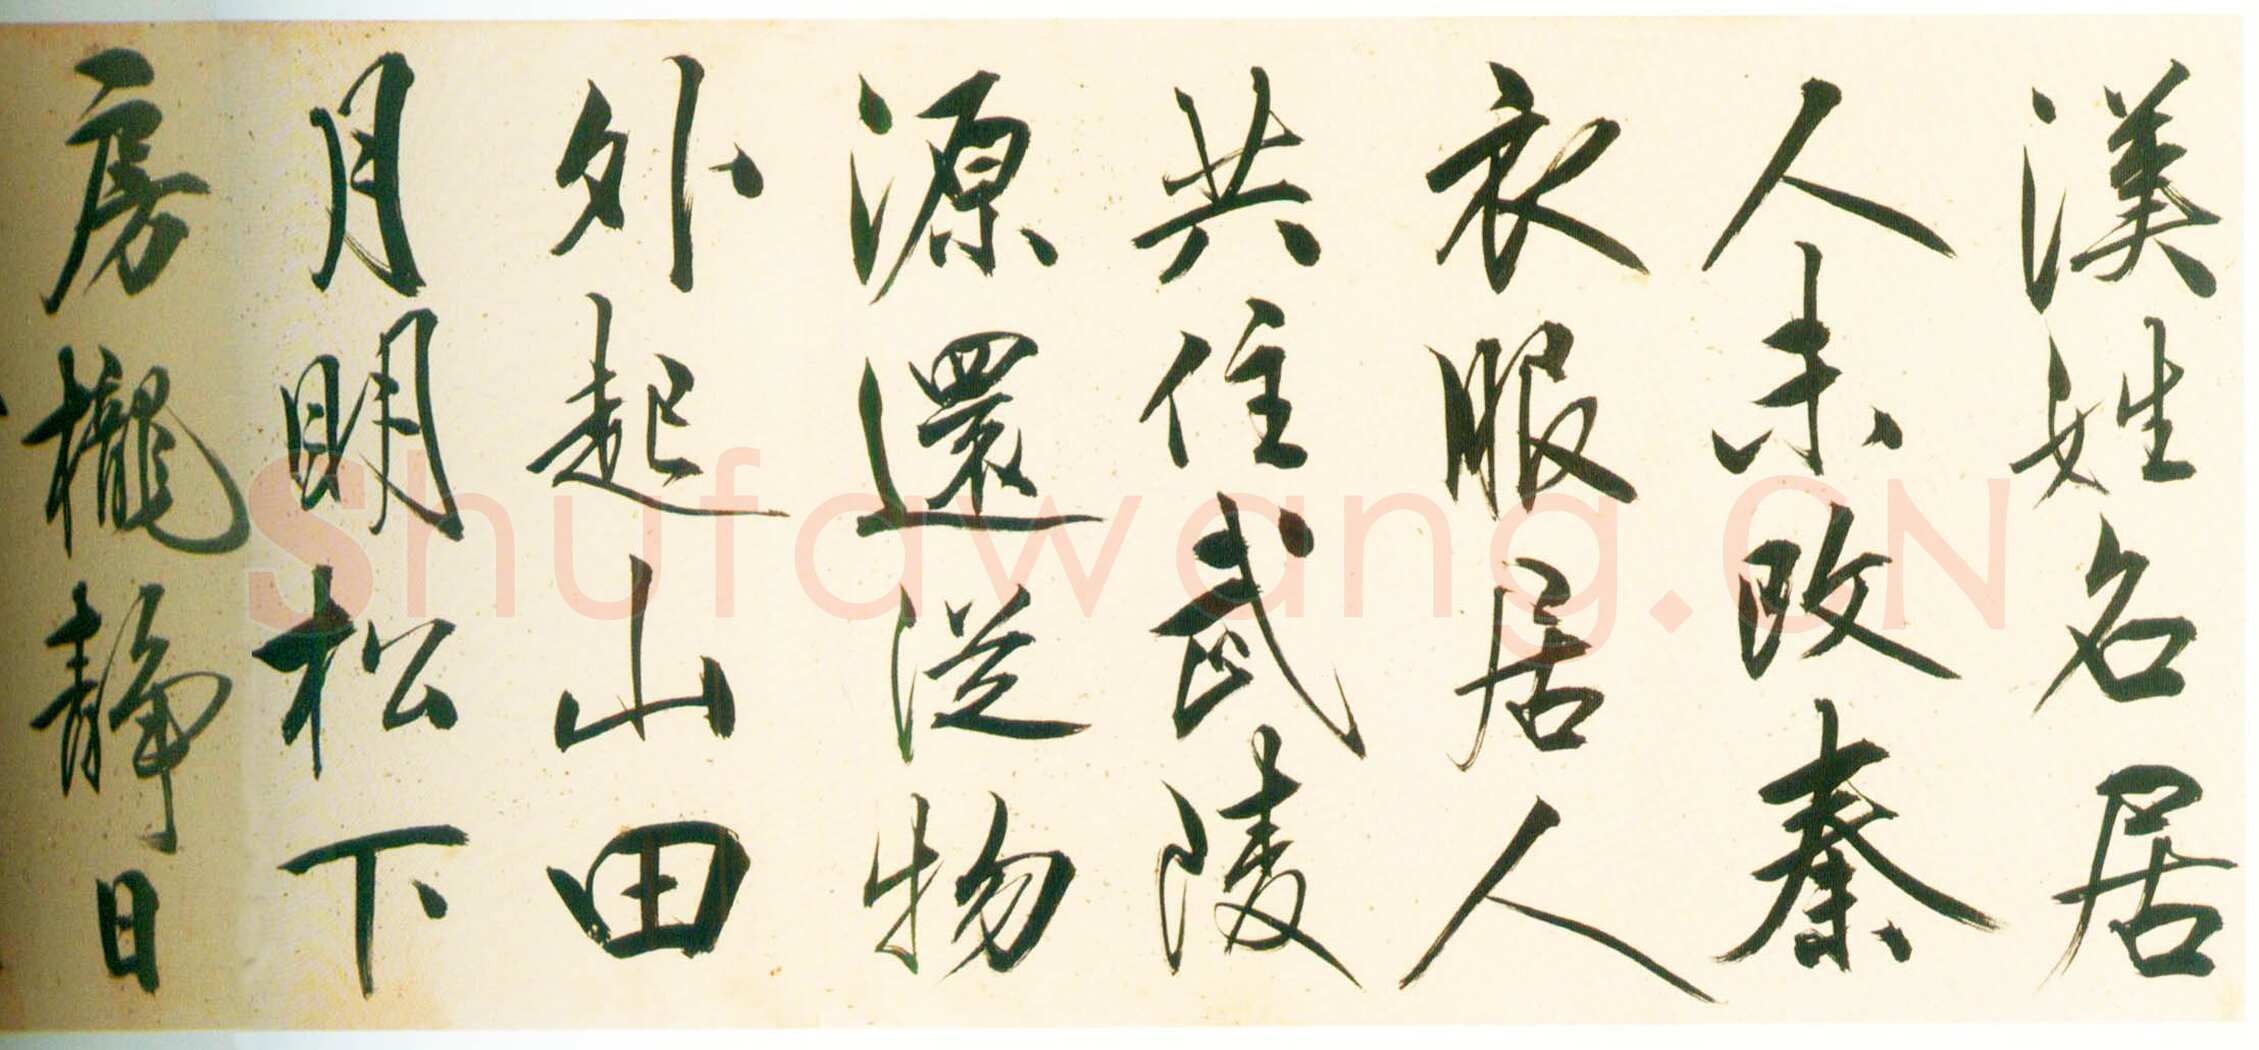 漢姓名居
人未改秦
衣服居人
共住武陵
源還從物
外起山田
月明松下
房櫳靜日
Shufawang.CN